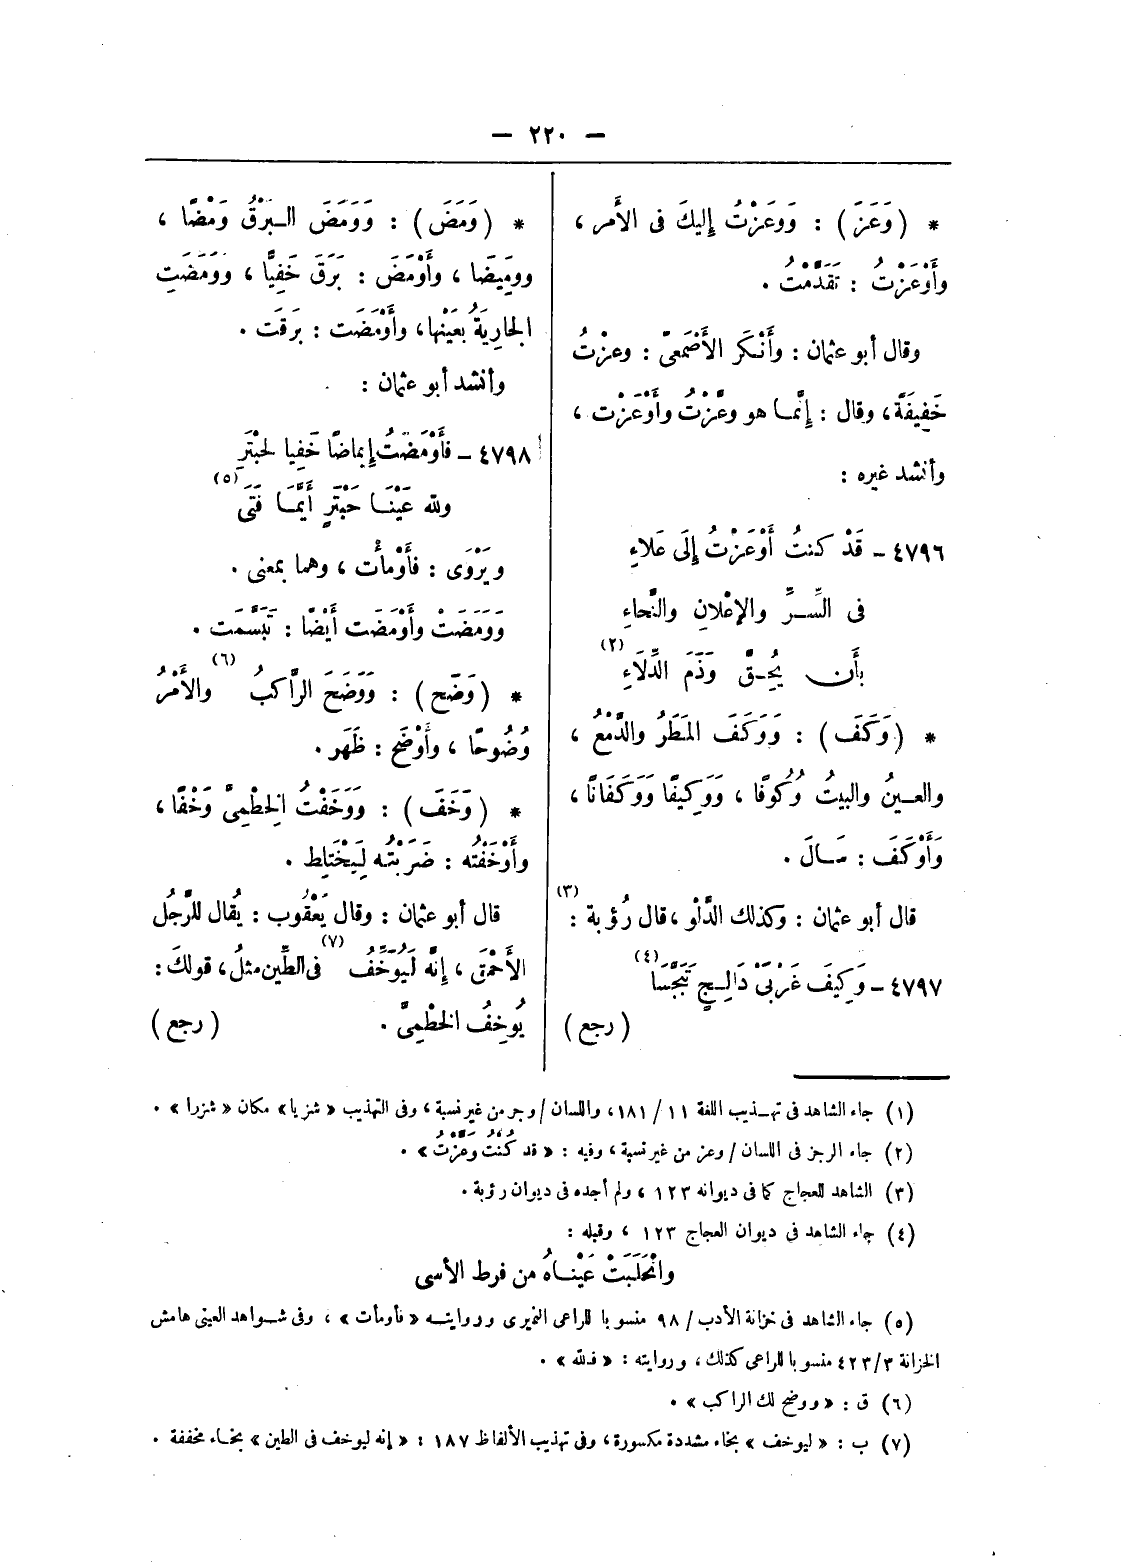 — ٢٢٠ —
* ( وَعَزَ ) : وَوَعَزْتُ إِليكَ فى الأَمر ،
وأَوْعَزْتُ : تَقَدَّمْتُ .
وقال أبو عثمان : وأَنْكَر الأَصْمَعىّ : وعزْتُ
خَفِيفَةً ، وقال : إِنَّما هو وعَّزْتُ وأَوْعَزْت ،
وأنشد غيره :
٤٧٩٦ – قَدْ كنتُ أَوْعَزْتُ إِلَى عَلاءِ
فى السِّــرِّ والإِعْلانِ والنَّجاءِ
بأَن يُحِــقَّ وَذَمَ الدِّلَاءِ (٢)
* ( وَكَفَ ) : وَوَكَفَ المَطَرُ والدَّمْعُ ،
والعــينُ والبيتُ وُكُوفًا ، وَوَكِيفًا وَوَكَفَانًا ،
وَأَوْكَفَ : سَــالَ .
قال أبو عثمان : وكذلك الدَّلْو ، قال رُؤبة (٣) :
٤٧٩٧ – وَكِيفَ غَرْبَىْ دَالِــجٍ تَبَجَّسَا (٤)
( رجع )
* ( وَمَضَ ) : وَوَمَضَ الــبَرْقُ وَمْضًا ،
وومِيَضًا ، وأَوْمَضَ : بَرَقَ خَفِيًّا ، ووَمَضَتِ
الجارِيَةُ بعَيْنها، وأَوْمَضَت : بَرقَت .
وأنشد أبو عثمان :
٤٧٩٨ – فأَوْمَضْتُ إِيماضًا خَفِيا لحَبْتَرٍ
ولله عَيْنَــا حَبْتَرٍ أَيَّمَــا فَتَى (٥)
ويَرْوَى : فأَوْمأْت ، وهما بمعنى .
وَوَمَضَتْ وأَوْمَضَت أَيْضًا : تَبَسَّمَت .
* ( وَضَح ) : وَوَضَحَ الرَّاكبُ (٦) والأَمْرُ
وُضُوحًا ، وأَوْضَح : ظَهَر .
* ( وَخَفَ ) : وَوَخَفْتُ الخِطْمِىَّ وَخْفًا ،
وأَوْخَفْتُه : ضَرَبْتُــه لِيَخْتَلِط .
قال أبو عثمان : وقال يَعْقُوب : يُقال للرَّجُل
الأَحْمَق ، إِنَّه لَيُوَخِّفُ (٧) فى الطِّين مثلُ، قولكَ :
يُوخِفُ الخطْمِىَّ .
( رجع )
(١) جاء الشاهد فى تهــذيب اللغة ١١ / ١٨١ ، واللسان / وجر من غير نسبة ، وفى التهذيب « شزيا » مكان « شزرا » .
(٢) جاء الرجز فى اللسان / وعز من غير نسبة ، وفيه : « قد كُنْتُ وَعَّزْتُ » .
(٣) الشاهد للعجاج كما فى ديوانه ١٢٣ ، ولم أجده فى ديوان رؤبة .
(٤) جاء الشاهد فى ديوان العجاج ١٢٣ ، وقبله :
وانْحَلَبَتْ عَيْنَــاهُ من فرط الأسى
(٥) جاء الشاهد فى خزانة الأدب / ٩٨ منسوبا للراعى النميرى وروايتــه « فأومأت » ، وفى شــواهد العينى هامش
الخزانة ٤٢٣/٣ منسوبا للراعى كذلك ، وروايته : « فلله » .
(٦) ق : « ووضح لك الراكب » .
(٧) ب : « ليوخف » بخاء مشددة مكسورة ، وفى تهذيب الألفاظ ١٨٧ : « إنه ليوخف فى الطين » بخــاء مخففة .